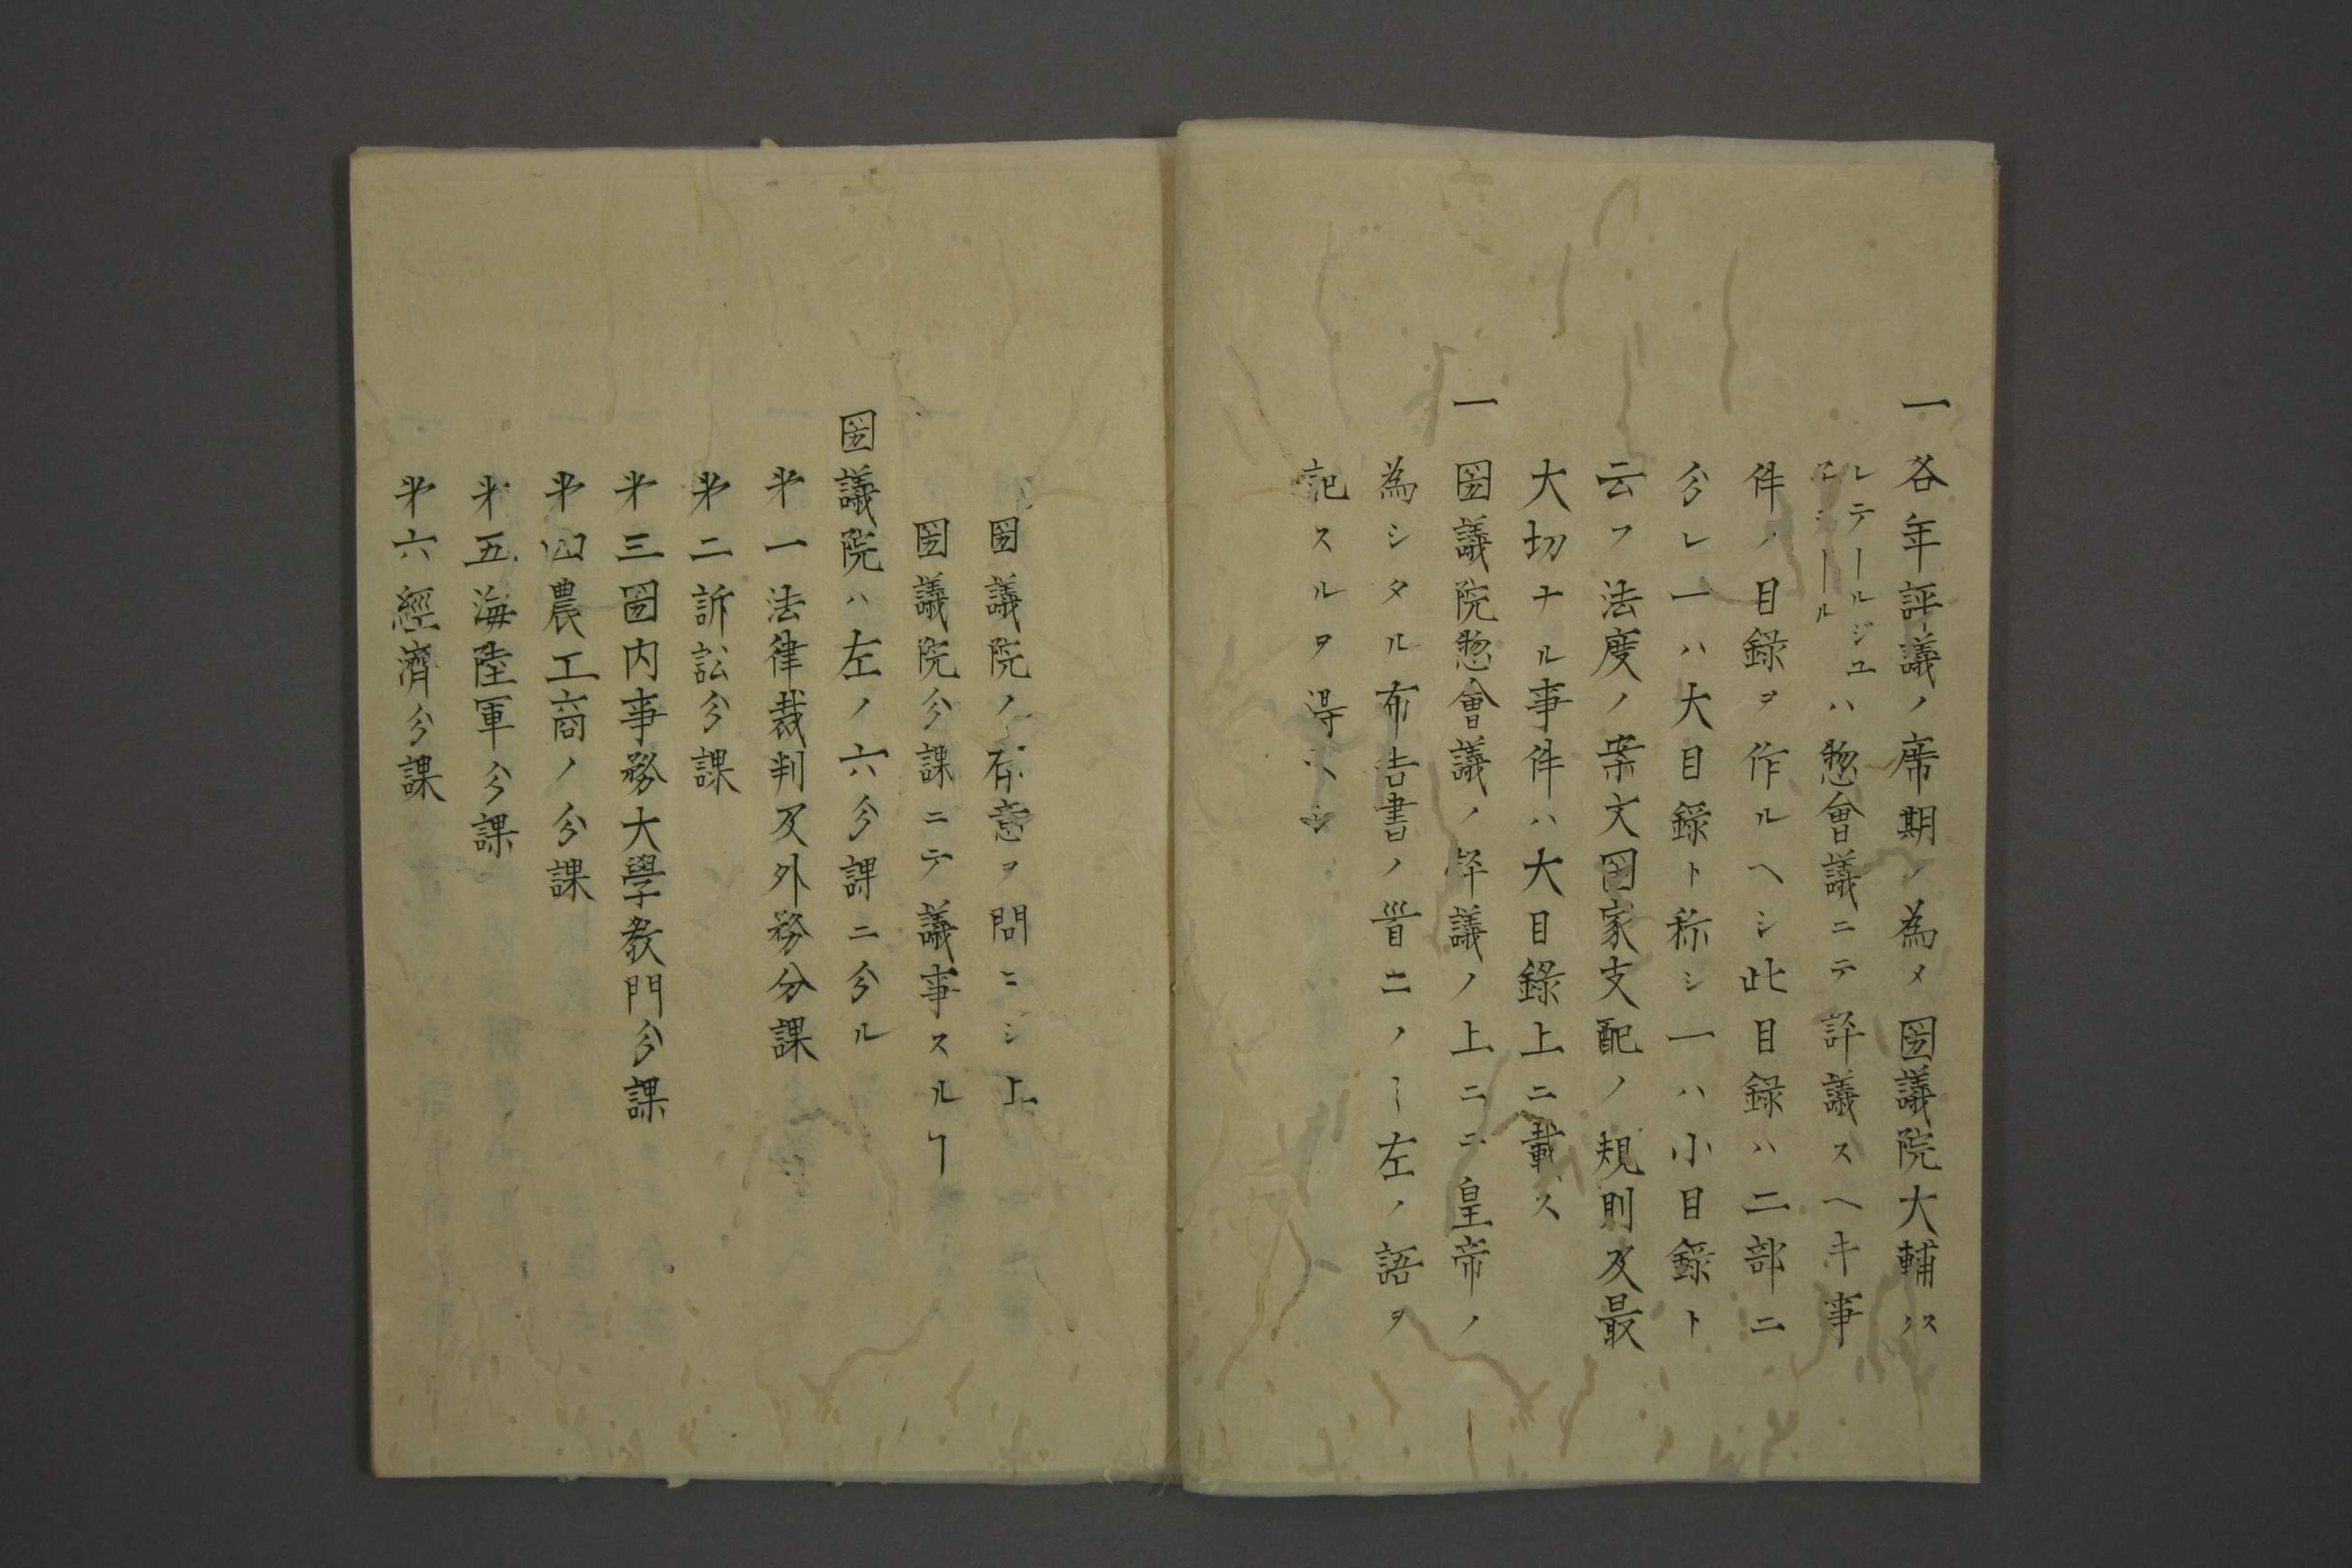 一各年評議ノ席期ノ為メ国議院大輔スク
レテールジユコンシールハ惣會議ニテ評議スヘキ事
件ノ目録ヲ作ルヘシ此目録ハ二部ニ
分レ一ハ大目錄ト称シ一ハ小目錄ト
云フ法度ノ案文国家支配ノ規則及最
大切ナル事件ハ大目錄上ニ載ス
一国議院惣會議ノ評議ノ上ニテ皇帝ノ
為シタル布告書ノ首ニノミ左ノ語ヲ
記スルヲ得ヘシ
国議院ノ存意ヲ問ヒシ上
国議院分課ニテ議事スルヿ
国議院ハ左ノ六分課ニ分ル
第一法律裁判及外務分課
第二訴訟分課
第三国内事務大學教門分課
第四農工商ノ分課
第五海陸軍分課
第六經濟分課